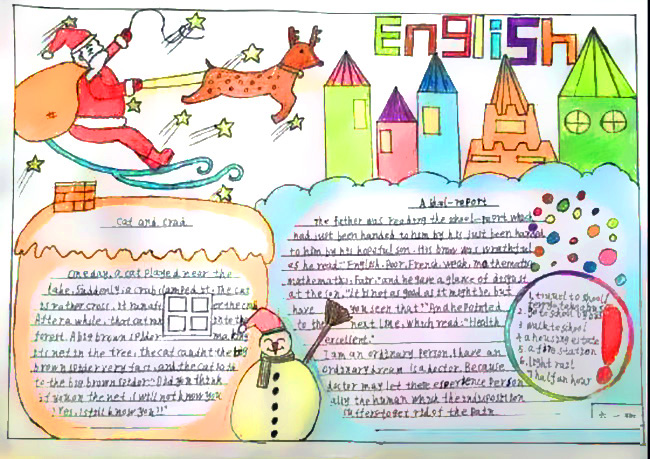 English
Cat and Crad
One day, a cat played near the
lake. Suddenly, a crab clamped it. The cat
is rather cross, it runs
After a while, that cat run to the
forest. A big brown spider making
it is not in the tree, the cat caught the big
brown spider very fast, and the cat said
to the big brown spider: "Did you think
if you on the net, i will not know you
Yes, i still know you!!"
A school-report
The father was reading the school-report which
had just been handed to him by his just been handed
to him by his hopeful son. His brow was wrathful
as he read: "English, Poor, French, weak, mathematic
mathematics, Fair," and he gave a glance of disgust
at the son, "It is not as good as it might be, but
have you seen that?" And he pointed
to the next line, which read: "Health
excellent."
I am an ordinary person, I have an
ordinary dream is a doctor. Because
doctor may let these experience person
ally the human which the indisposition
suffers to get rid of the pain.
1. travel to school
ferry, take a bus
2. go to school by bus
3. walk to school
4. a housing estate
5. a fire station
6. light rail
7. half an hour
六一